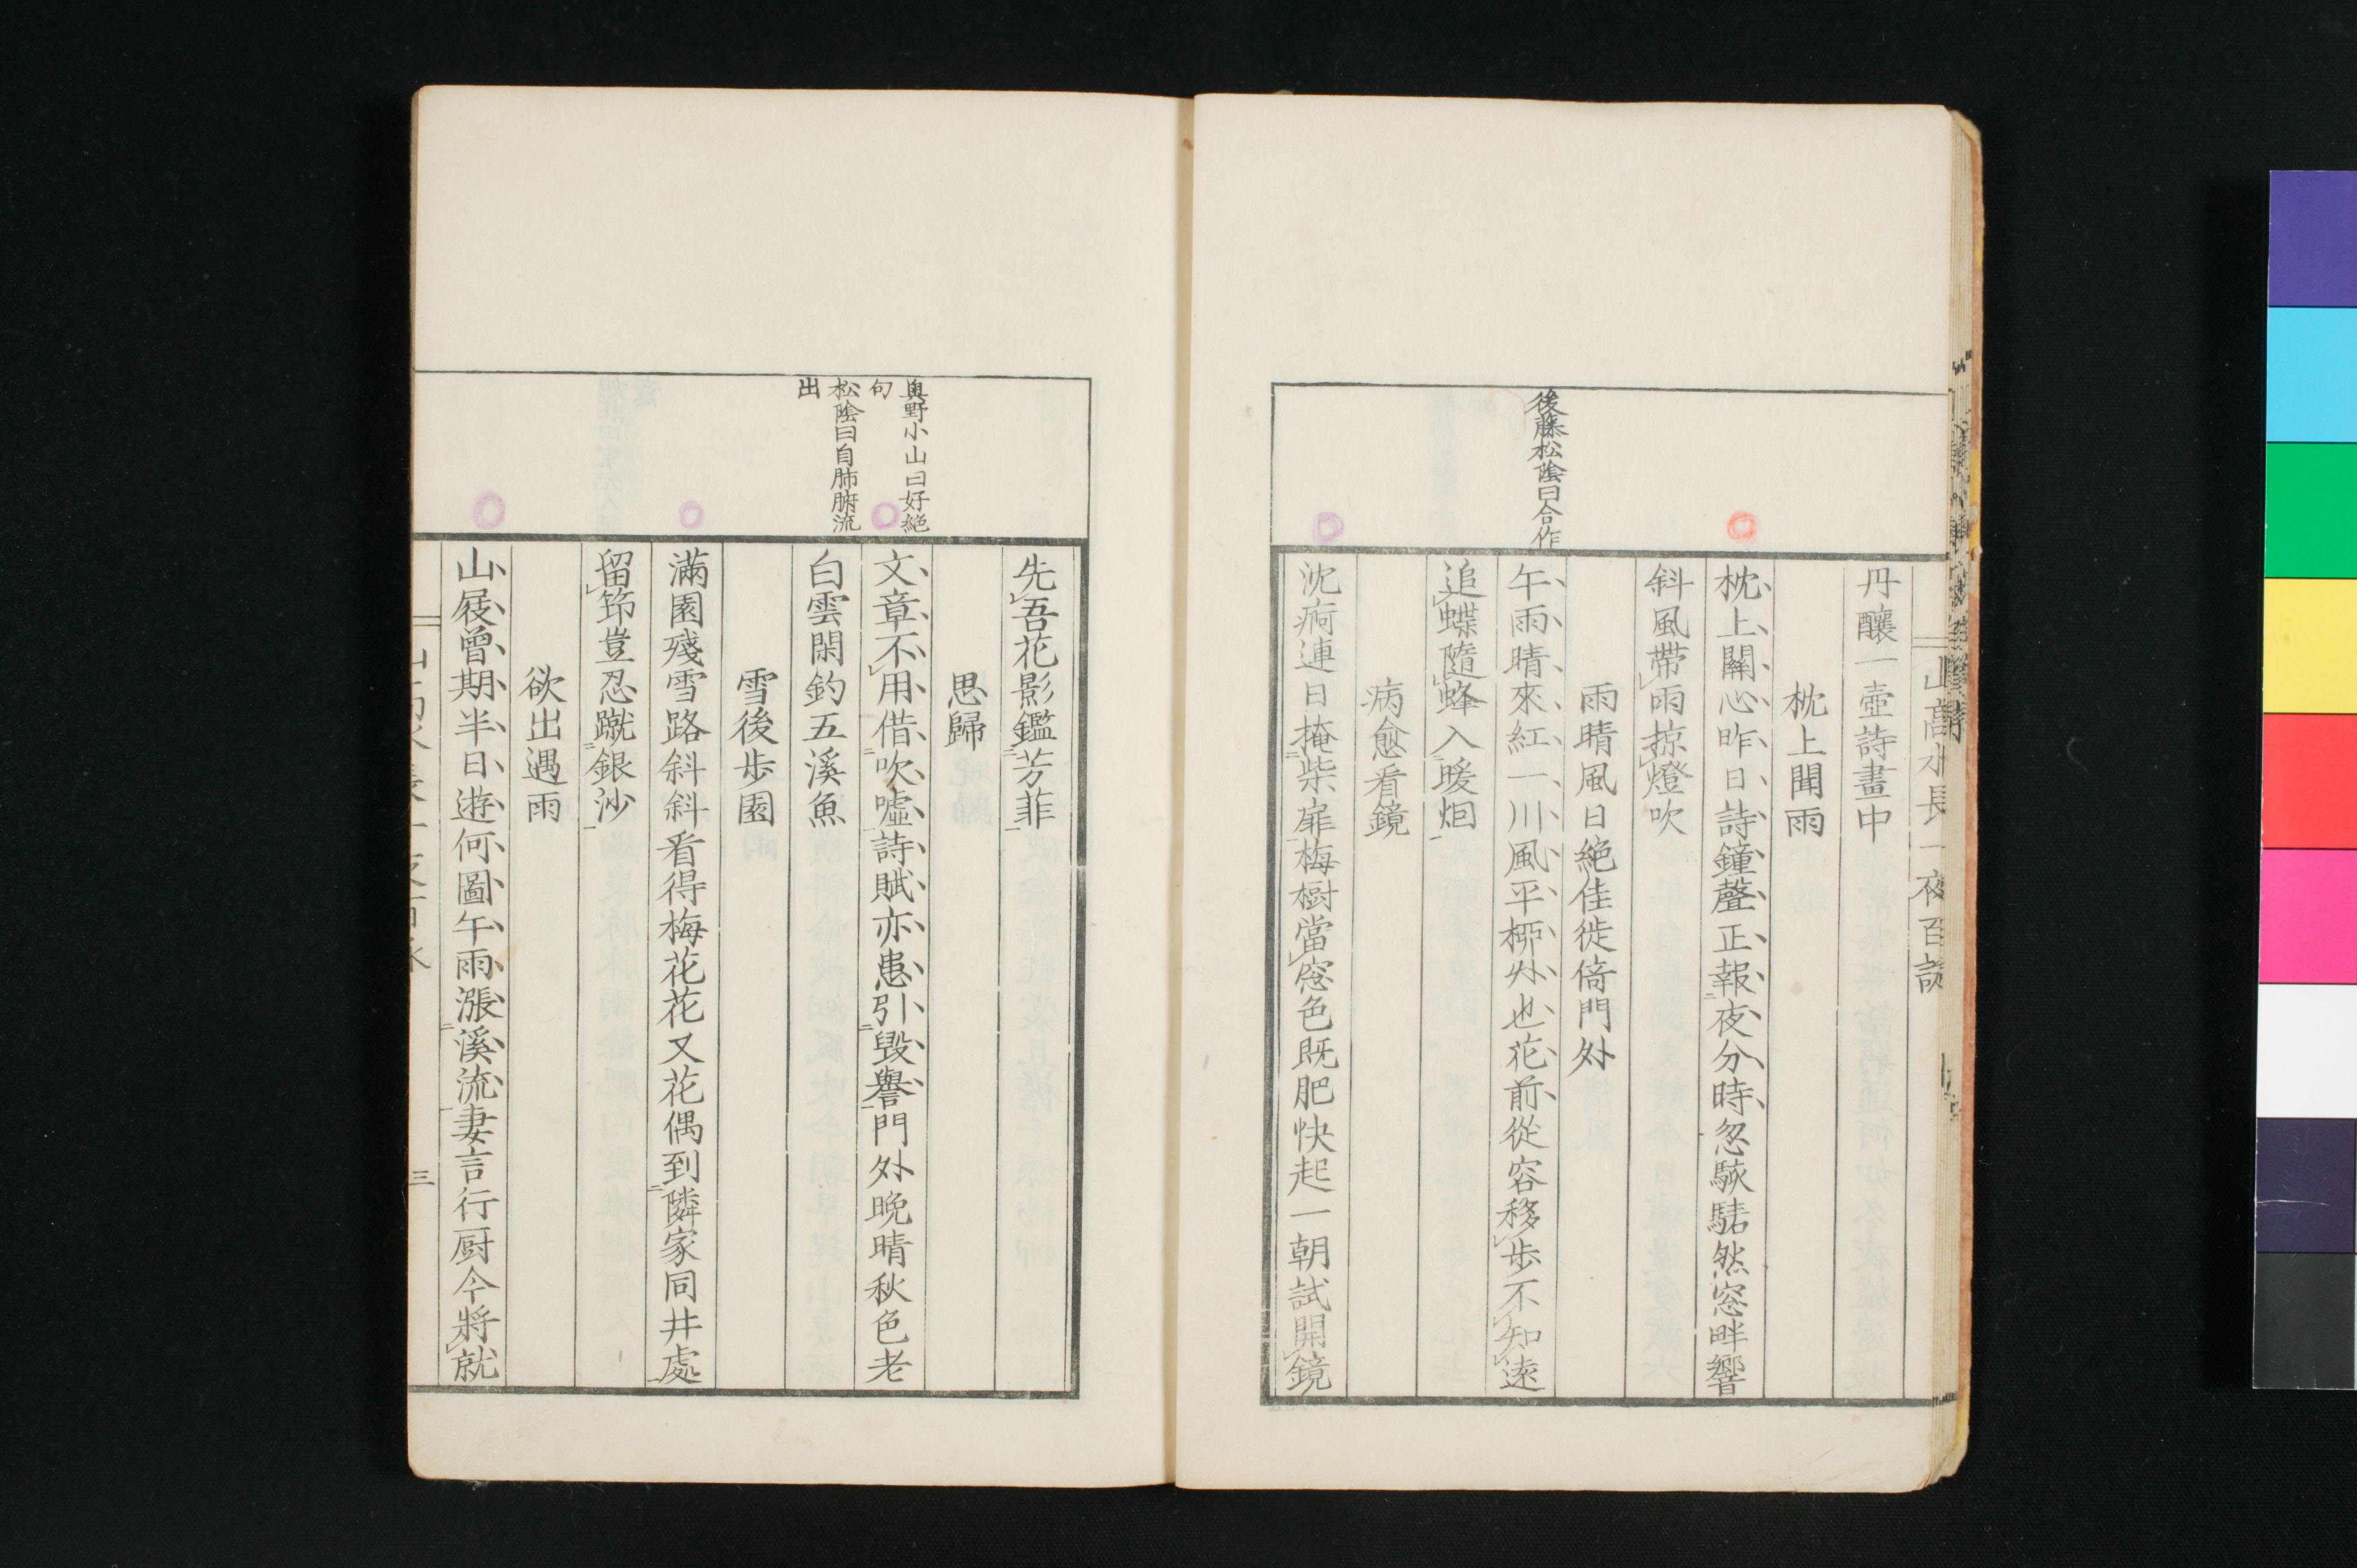 丹釀一壺詩畫中
枕上聞雨
枕上關心昨日詩鐘聲正報夜分時忽驚騞然窓畔響
斜風帶雨掠燈吹
雨晴風日絶佳徙倚門外
午雨晴來紅一川風平桺外也花前從容移歩不知遠
追蝶隨蜂入暖烟
病愈看鏡
沈痾連日掩柴扉梅樹當窓色既肥快起一朝試開鏡
後藤松陰曰合作
先吾花影鑑芳菲
思歸
文章不用借吹嘘詩賦亦患引毀譽門外晩晴秋色老
白雲閑釣五溪魚
雪後歩園
滿園殘雪路斜斜看得梅花花又花偶到隣家同井處
留筇豈忍蹴銀沙
欲出遇雨
山屐曾期半日遊何圖午雨漲溪流妻言行厨今將就
奥野小山曰好絶
句
松陰曰自肺腑流
出
山高水長一夜百詠
三